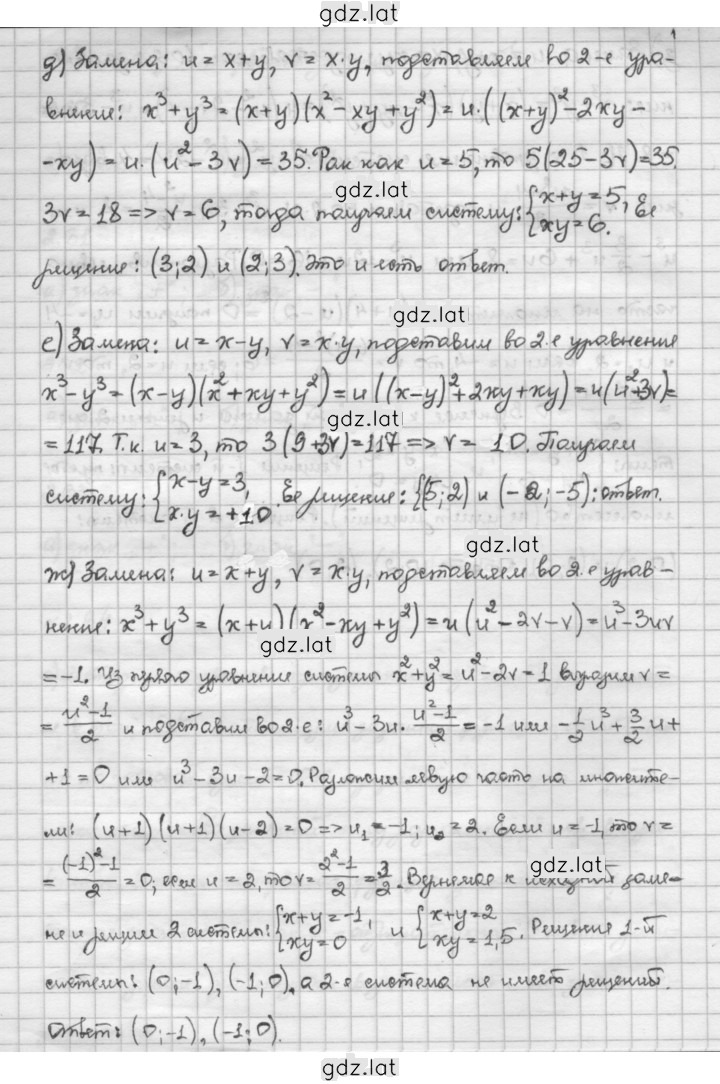 gdz.lat
1
д) Замена: u = x+y, v = x·y, подставляем во 2-е урав-
внение: x³+y³ = (x+y)(x²-xy+y²) = u·((x+y)²-2xy-
gdz.lat
-xy) = u·(u²-3v) = 35. Так как u=5, то 5(25-3v)=35.
gdz.lat
3v=18 => v=6; тогда получаем систему: {x+y=5, Её
{xy=6.
решение: (3;2) и (2;3). Это и есть ответ.
gdz.lat
е) Замена: u = x-y, v = x·y, подставим во 2-е уравнение
x³-y³ = (x-y)(x²+xy+y²) = u((x-y)²+2xy+xy) = u(u²+3v)=
gdz.lat
= 117. Т.к. u=3, то 3(9+3v)=117 => v = 10. Получаем
систему: {x-y=3, Её решение: {(5;2) и (-2;-5): ответ.
{x·y=+10
gdz.lat
ж) Замена: u = x+y, v = x·y, подставляем во 2-е урав-
нение: x³+y³ = (x+y)(x²-xy+y²) = u(u²-2v-v) = u³-3uv
gdz.lat
= -1. Из первого уравнения системы x²+y² = u²-2v = 1 выразим v =
= (u²-1)/2 и подставим во 2-е: u³-3u·(u²-1)/2 = -1 или -1/2u³+3/2u+
+1=0 или u³-3u-2=0. Разложим левую часть на множите-
ли: (u+1)(u+1)(u-2)=0 => u₁=-1; u₂=2. Если u=-1, то v=
gdz.lat
= ((-1)²-1)/2 = 0; если u=2, то v = (2²-1)/2 = 3/2. Вернемся к исходной заме-
не и решим 2 системы: {x+y=-1, и {x+y=2 Решение 1-й
{xy=0 {xy=1,5.
системы: (0;-1), (-1;0), а 2-я система не имеет решений.
Ответ: (0;-1), (-1;0).
gdz.lat